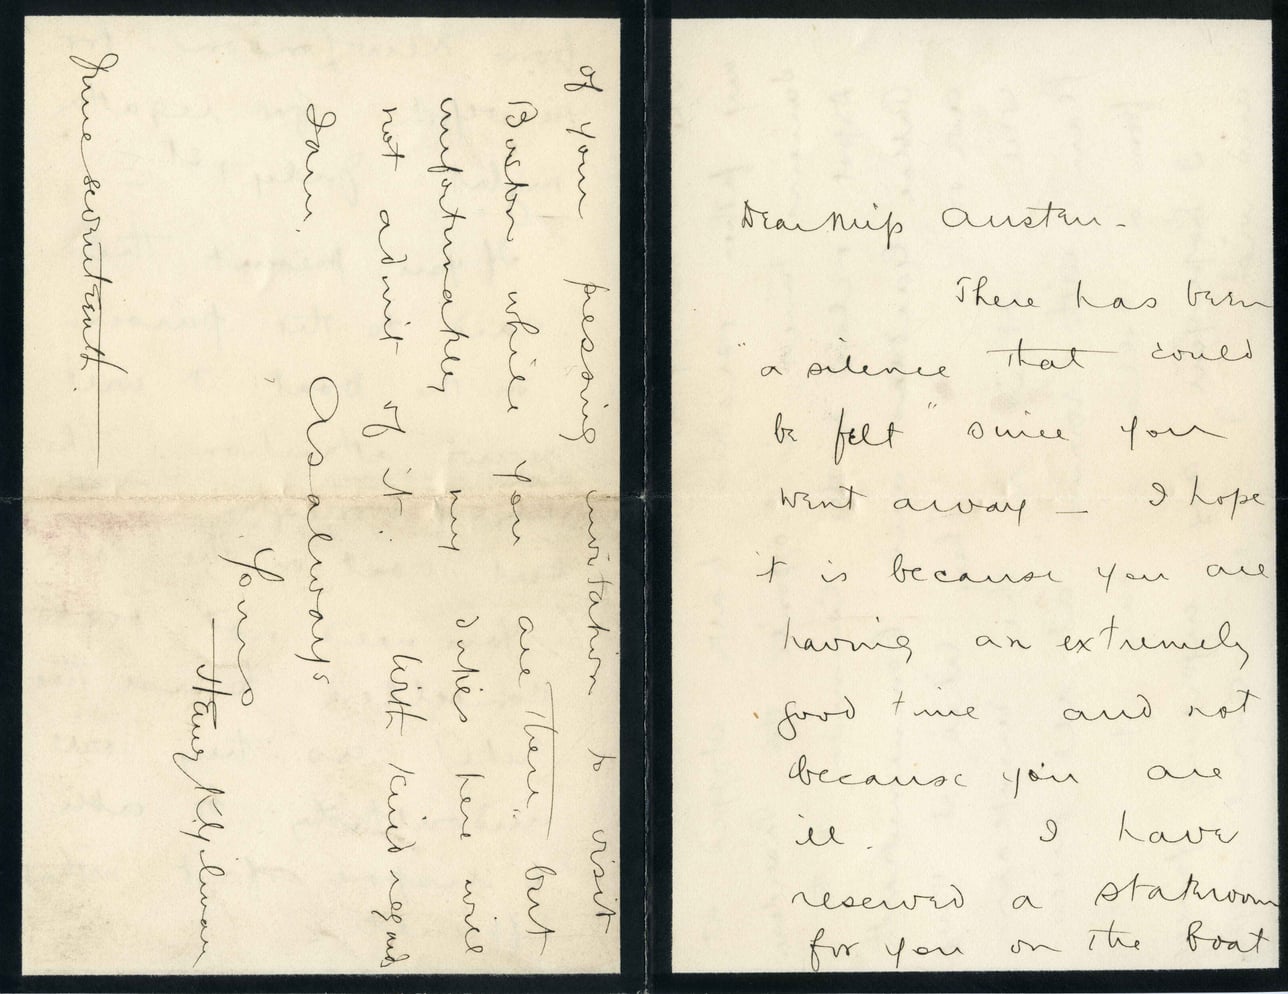 Dear Miss Austen -
There has been
"a silence that could
be felt" since you
went away — I hope
it is because you are
having an extremely
good time and not
because you are
ill. I have
reserved a stateroom
for you on the boat
of your pressing invitation to visit
Boston while you are there" but
unfortunately my duties here will
not admit of it. With kind regards
I am.
As always
Yours
Harry K. Gilman
June seventeenth.